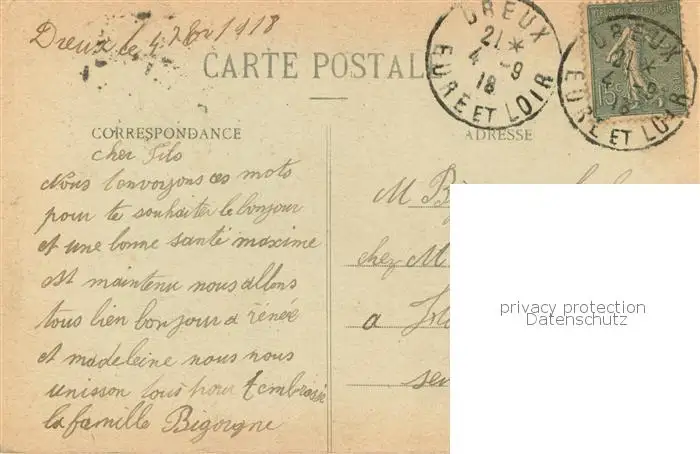 Dreux le 4 7bre 1918
CARTE POSTAL
DREUX
21 *
4 -9
18
EURE ET LOIR
DREUX
21 *
4 -9
18
EURE ET LOIR
15c
CORRESPONDANCE
ADRESSE
cher Fils
Nous t'envoyons ces mots
pour te souhaiter le bonjour
et une bonne santé maxime
est maintenu nous allons
tous bien bonjour a rénée
et madeleine nous nous
unisson tous pour t embrassé
la famille Bigorgne
M
chez M
a
privacy protection
Datenschutz